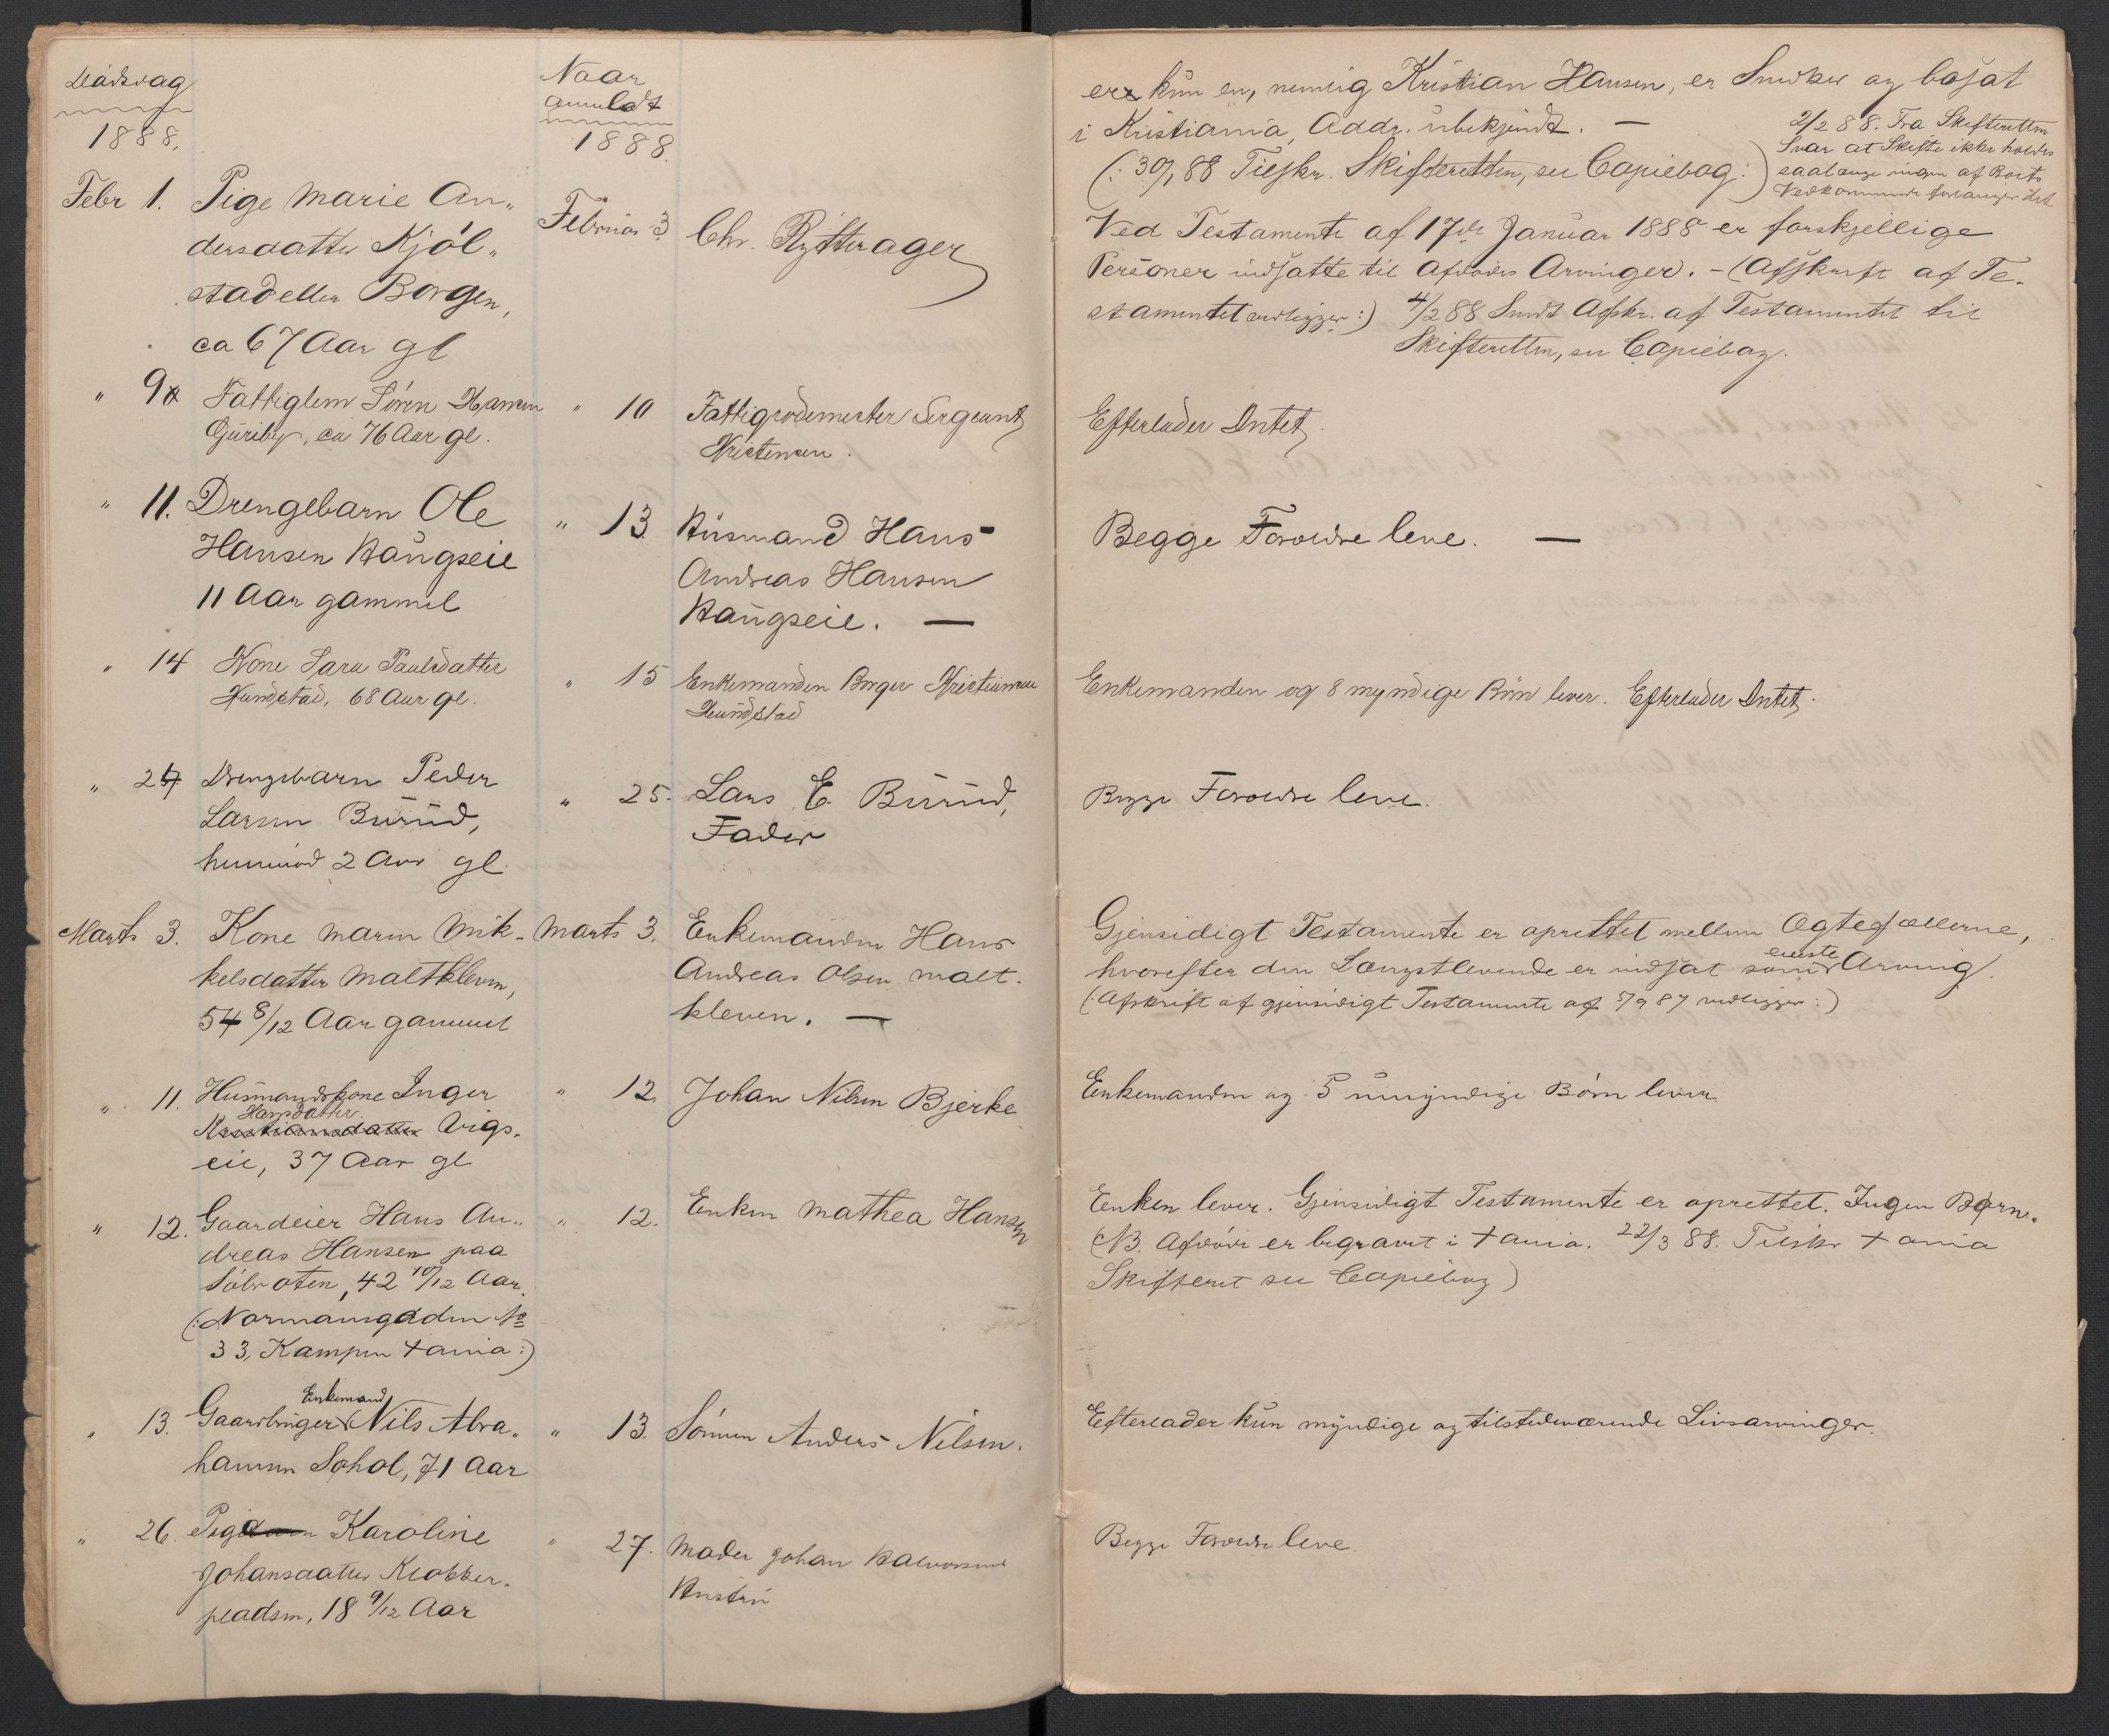 Dødsdag
1888.
Naar
anmeldt
1888.
Febr 1. Pige Marie An„
dersdatter Kjøl„
stad eller Borgen,
ca 67 Aar gl
Februar 3.
Chr. Rytterager
" 9 Fattiglem Søren Hansen
Guriby, ca 76 Aar gl.
" 10
Fattigrodemester Sergeant
Kristensen.
" 11. Drengebarn Ole
Hansen Haugseie
11 Aar gammel
" 13.
Husmand Hans
Andreas Hansen
Haugseie. —
" 14 Kone Sara Paulsdatter
Hundstad, 68 Aar gl.
" 15
Enkemanden Borger Kristiansen
Hundstad
" 24 Drengebarn Peder
Larsen Burud,
2 Aar gl.
" 25.
Lars E. Burud,
Fader
Marts 3. Kone Maren Mik-
kelsdatter Maltkleven,
54 8/12 Aar gammel
Marts 3.
Enkemanden Hans
Andreas Olsen Malt-
kleven. —
" 11. Husmandskone Inger
Hansdatter
Kristiansdatter Vigs-
eie, 37 Aar gl
" 12.
Johan Nilsen Bjerke
" 12. Gaardeier Hans An„
dreas Hansen paa
Sølvroten, 42 10/12 Aar.
(: Normansgaden No
33, Kampen Xania :)
" 12.
Enken Mathea Hansen
Enkemand
" 13. Gaardbruger Nils Abra„
hamsen Sohol, 71 Aar
" 13.
Sønnen Anders Nilsen.
" 26. Pige Karoline
Johansdatter Klokker-
pladsen, 18 9/12 Aar
" 27.
Moder Johan Halvorsens
Hustru
er kun en, nemlig Kristian Hansen, er Snedker og bosat
i Kristiania, Addr. ubekjendt. —
(: 30/1 88 Tilskr. Skifteretten, se Copiebog :)
2/2 88. Fra Skifteretten
Svar at Skifte ikke holdes
saalænge ingen af Boets
Vedkommende forlanger det
Ved Testamente af 17de Januar 1888 er forskjellige
Personer indsatte til Afdødes Arvinger. – (Afskrift af Te-
stamentet vedligger :) 4/2 88 Sendt Afskr. af Testamentet til
Skifteretten, se Copiebog.
Efterlader Intet.
Begge Forældre leve. —
Enkemanden og 8 myndige Børn lever. Efterlader Intet.
Begge Forældre leve.
Gjensidigt Testamente er oprettet mellem Ægtefællerne,
eneste
hvorefter den Længstlevende er indsat som Arving.
(: Afskrift af gjensidigt Testamente af 5/9 87 vedligger :)
Enkemanden og 5 umyndige Børn lever.
Enken lever. Gjensidigt Testamente er oprettet. Ingen Børn.
(NB. Afdøde er begravet i Xania. 22/3 88. Tilskr. Xania
Skifteret se Copiebog)
Efterlader kun myndige og tilstedeværende Livsarvinger.
Begge Forældre leve.